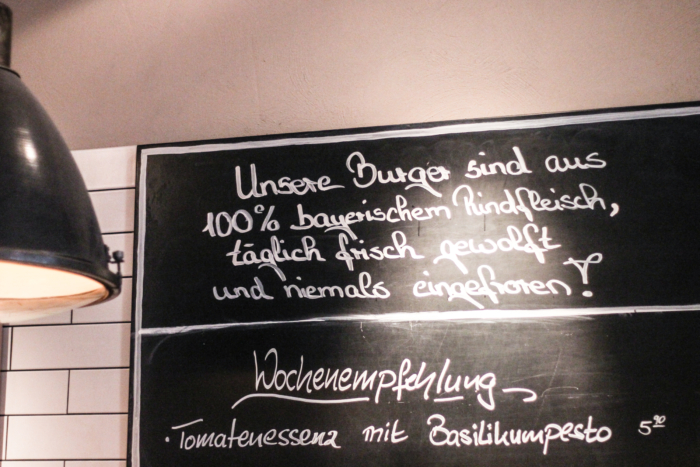 Unsere Burger sind aus
100% bayerischem Rindfleisch,
täglich frisch gewolft
und niemals eingefroren!
Wochenempfehlung
· Tomatenessenz mit Basilikumpesto 5,90